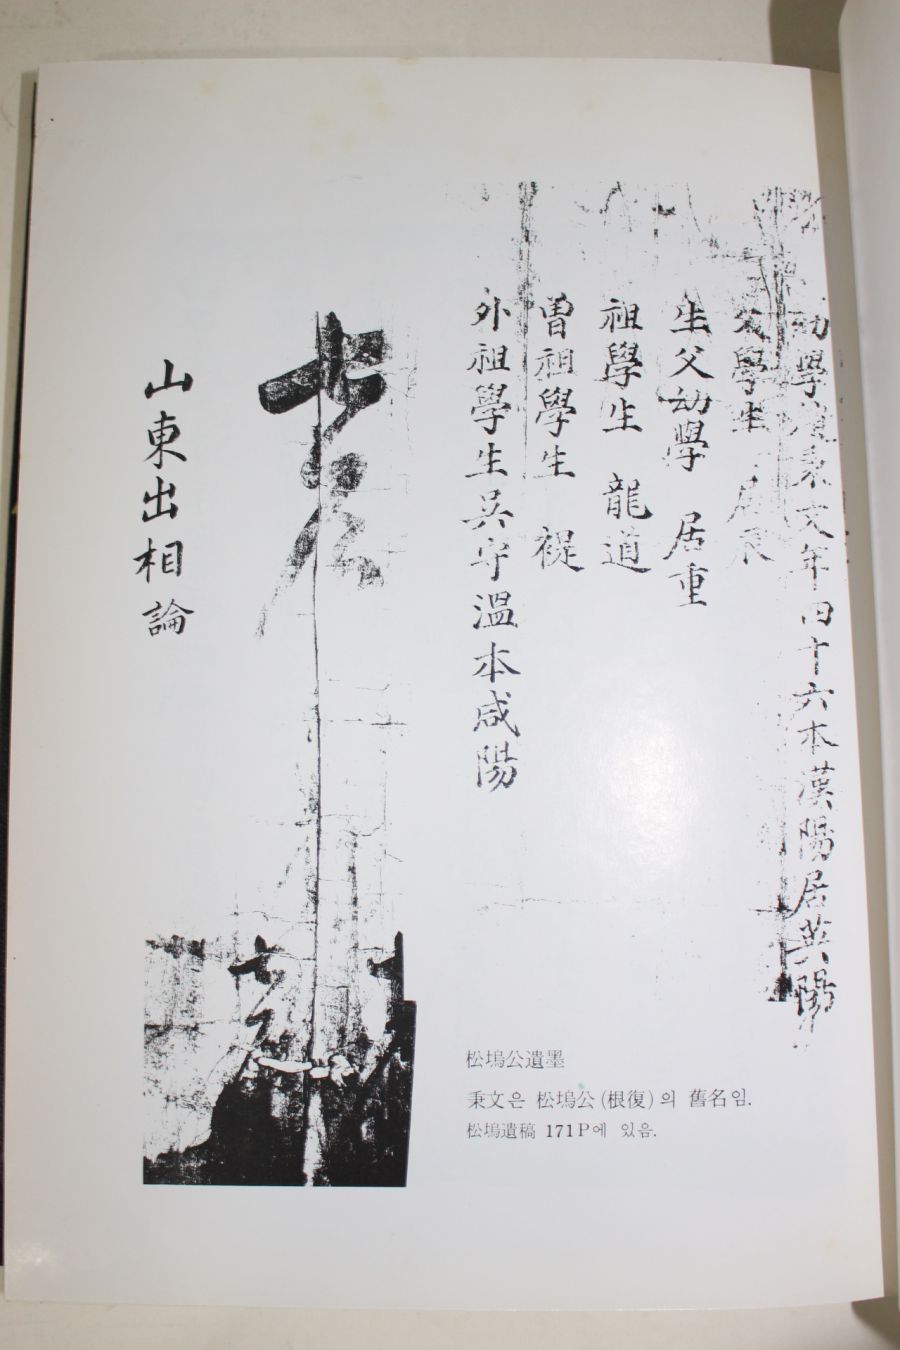 幼學 秉文年四十六本漢陽居英陽
父學生
生父幼學 居重
祖學生 龍道
曾祖學生 禔
外祖學生吳守溫本咸陽
山東出相論
松塢公遺墨
秉文은 松塢公(根復)의 舊名임.
松塢遺稿 171P에 있음.